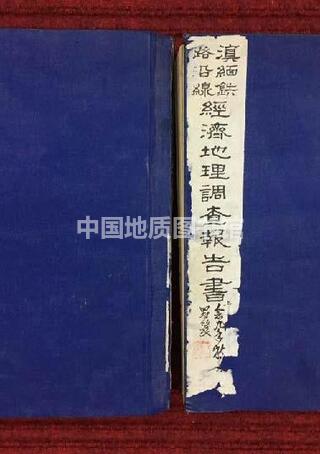 滇緬鉄
路沿線
經濟地理調查報告書
中国地质图